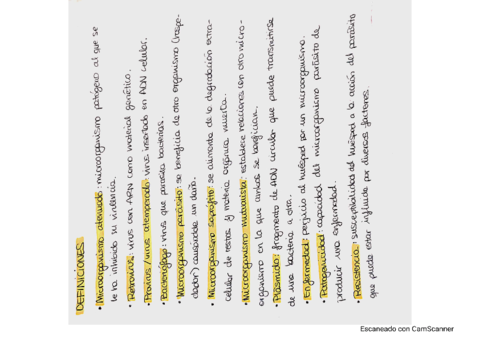 DEFINICIONES
• Microorganismo atenuado: microorganismo patógeno al que se
le ha inhibido su virulencia.
• Retrovirus: virus con ARN como material genético.
• Provirus/virus atemperado: virus insertado en ADN celular.
• Bacteriófago: virus que parasita bacterias.
• Microorganismo parásito: se beneficia de otro organismo (hospe-
dador) causándole un daño.
• Microorganismo saprófito: se alimenta de la degradación extra-
celular de restos y materia orgánica muerta.
• Microorganismo mutualista: establece relaciones con otro micro-
organismo en la que ambos se benefician.
• Plásmido: fragmento de ADN circular que puede transmitirse
de una bacteria a otra.
• Enfermedad: perjuicio al huésped por un microorganismo.
• Patogenicidad: capacidad del microorganismo parásito de
producir una enfermedad.
• Resistencia: susceptibilidad del huésped a la acción del parásito
que puede estar influida por diversos factores.
Escaneado con CamScanner